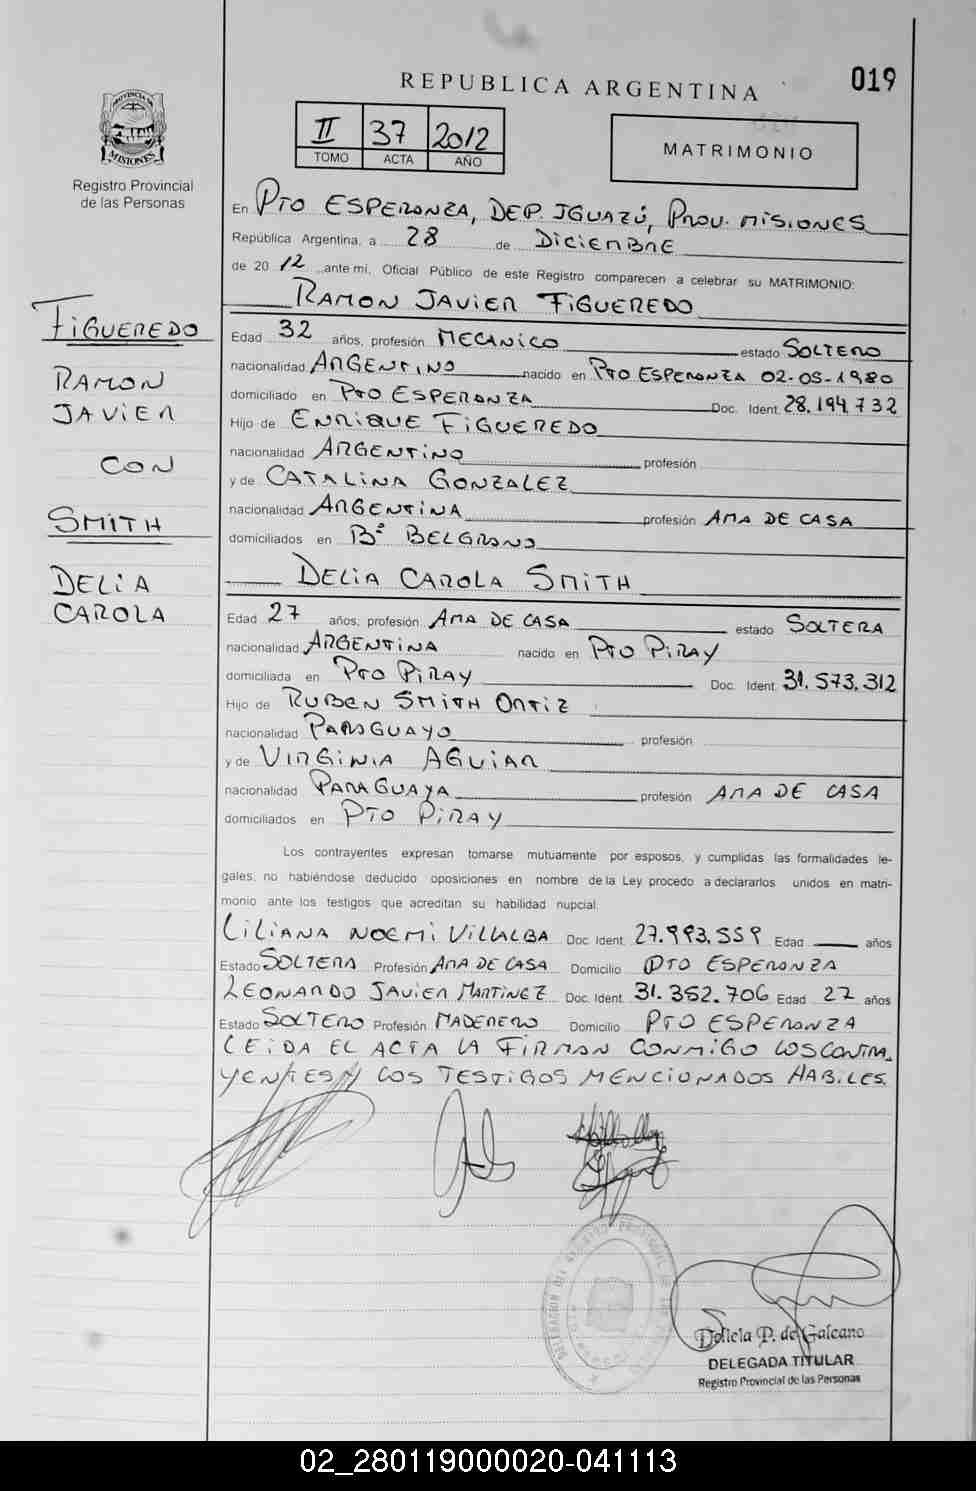 REPUBLICA ARGENTINA
019
PROVINCIA DE
MISIONES
Registro Provincial
de las Personas
II 37 2012
TOMO ACTA AÑO
MATRIMONIO
En PTO ESPERANZA, DEP. IGUAZÚ, PROV. MISIONES
República Argentina, a 28 de DICIEMBRE
de 2012 ante mi, Oficial Público de este Registro comparecen a celebrar su MATRIMONIO:
RAMON JAVIER FIGUEREDO
FIGUEREDO
RAMON
JAVIER
CON
SMITH
DELIA
CAROLA
Edad 32 años, profesión MECANICO estado SOLTERO
nacionalidad ARGENTINO nacido en PTO ESPERANZA 02-05-1980
domiciliado en PTO ESPERANZA Doc. Ident. 28.194.732
Hijo de ENRIQUE FIGUEREDO
nacionalidad ARGENTINO profesión
y de CATALINA GONZALEZ
nacionalidad ARGENTINA profesión AMA DE CASA
domiciliados en Bº BELGRANO
DELIA CAROLA SMITH
Edad 27 años, profesión AMA DE CASA estado SOLTERA
nacionalidad ARGENTINA nacido en PTO PIRAY
domiciliada en PTO PIRAY Doc. Ident. 31.573.312
Hijo de RUBEN SMITH ORTIZ
nacionalidad PARAGUAYO profesión
y de VIRGINIA AGUIAR
nacionalidad PARAGUAYA profesión AMA DE CASA
domiciliados en PTO PIRAY
Los contrayentes expresan tomarse mutuamente por esposos, y cumplidas las formalidades le-
gales, no habiéndose deducido oposiciones en nombre de la Ley procedo a declararlos unidos en matri-
monio ante los testigos que acreditan su habilidad nupcial:
LILIANA NOEMI VILLALBA Doc. Ident. 27.993.559 Edad años
Estado SOLTERA Profesión AMA DE CASA Domicilio PTO ESPERANZA
LEONARDO JAVIER MARTINEZ Doc. Ident. 31.352.706 Edad 27 años
Estado SOLTERO Profesión MADERERO Domicilio PTO ESPERANZA
LEIDA EL ACTA LA FIRMAN CONMIGO LOS CONTRA
YENTES Y LOS TESTIGOS MENCIONADOS HABILES.
Dolicia P. de Galeano
DELEGADA TITULAR
Registro Provincial de las Personas
02_280119000020-041113